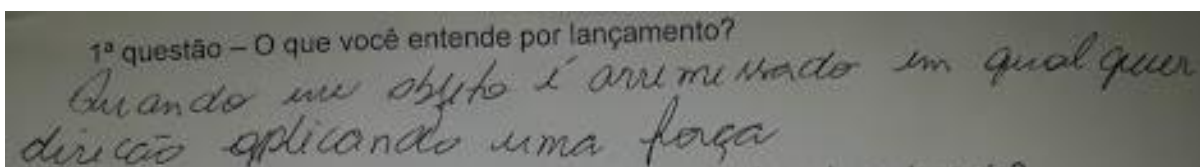 1ª questão – O que você entende por lançamento?
Quando um objeto é arremessado em qualquer
direção aplicando uma força